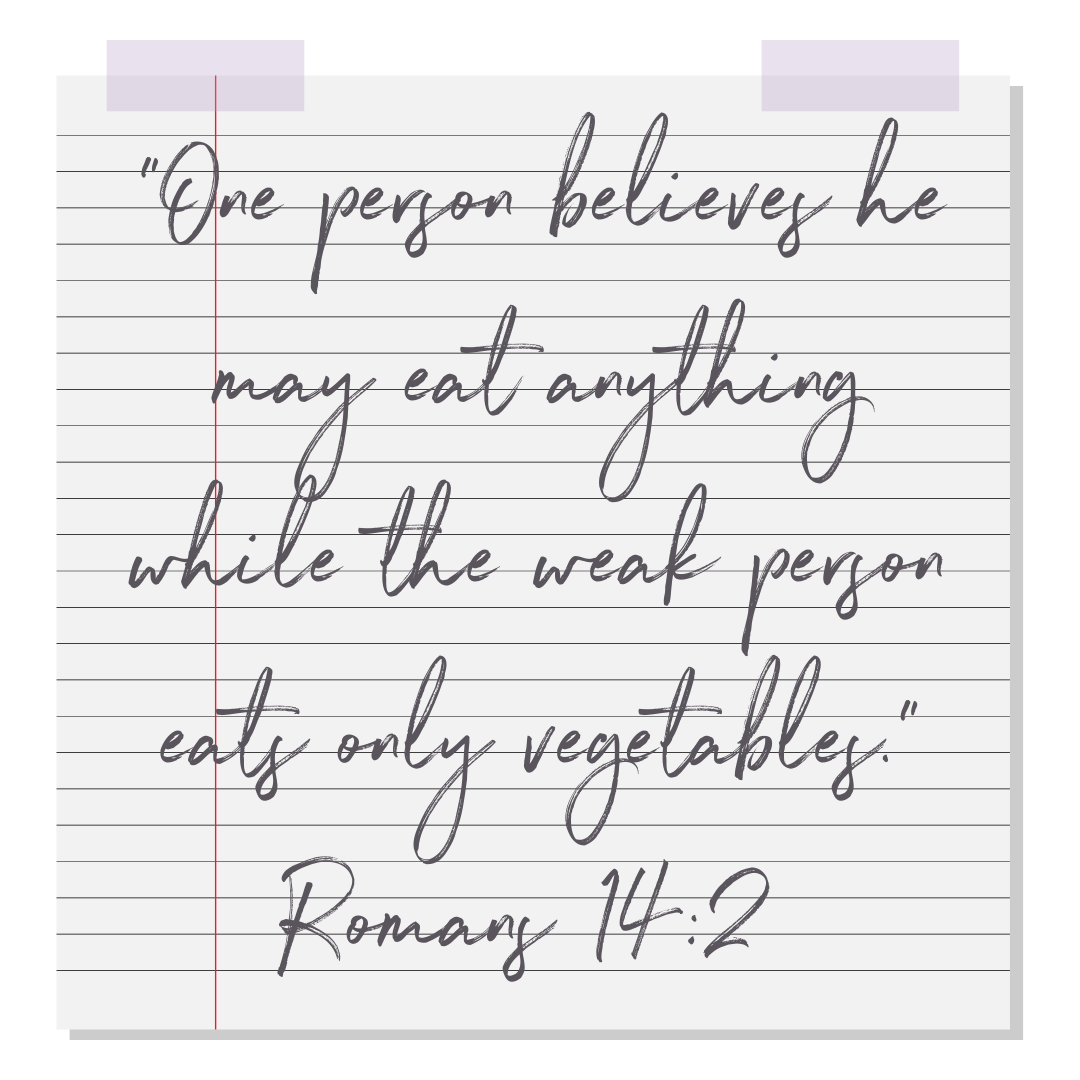 "One person believes he
may eat anything
while the weak person
eats only vegetables."
Romans 14:2